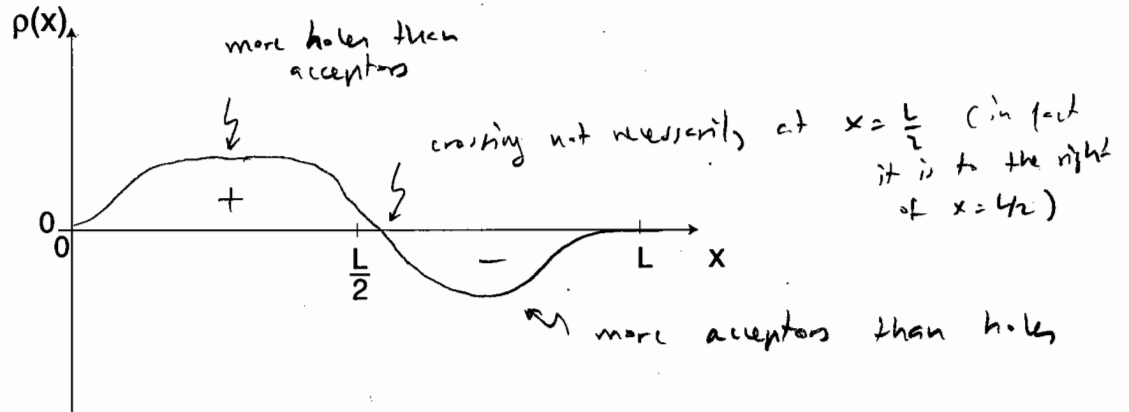 ρ(x)
more holes than
acceptors
crossing not necessarily at x = L/2 (in fact
it is to the right
of x = L/2)
+
0
0
L/2
−
L
x
more acceptors than holes